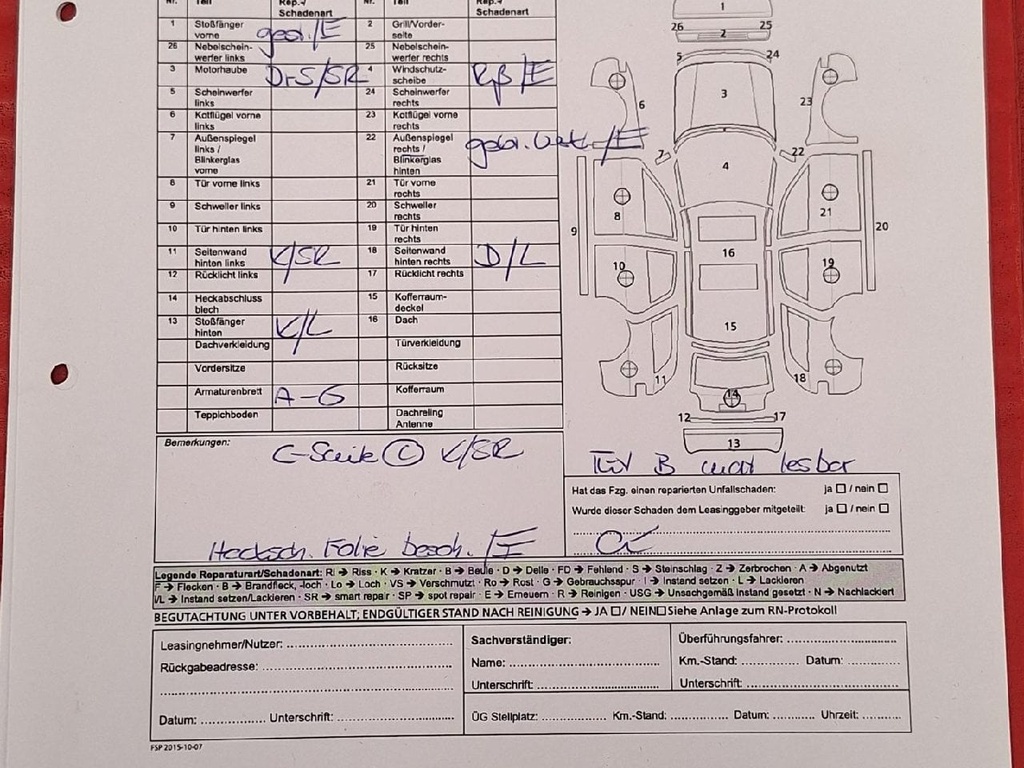 Nr. Teil Rep.-/ Schadenart Nr. Teil Rep.-/ Schadenart
1 Stoßfänger vorne /E 2 Grill/Vorder-seite
26 Nebelschein-werfer links 25 Nebelschein-werfer rechts
3 Motorhaube D+S/SR 4 Windschutz-scheibe /E
5 Scheinwerfer links 24 Scheinwerfer rechts
6 Kotflügel vorne links 23 Kotflügel vorne rechts
7 Außenspiegel links / Blinkerglas vorne 22 Außenspiegel rechts / Blinkerglas hinten /E
8 Tür vorne links 21 Tür vorne rechts
9 Schweller links 20 Schweller rechts
10 Tür hinten links 19 Tür hinten rechts
11 Seitenwand hinten links K/SR 18 Seitenwand hinten rechts D/L
12 Rücklicht links 17 Rücklicht rechts
14 Heckabschluss blech 15 Kofferraum-deckel
13 Stoßfänger hinten K/L 16 Dach
Dachverkleidung Türverkleidung
Vordersitze Rücksitze
Armaturenbrett A-G Kofferraum
Teppichboden Dachreling Antenne
1
26 25
2
5 24
3
6 23
7 22
4
8 21
9 20
16
10 19
15
11 18
14
12 17
13
Bemerkungen:
C-Säule C K/SR
Hecksch. Folie besch. /E
TÜV B nicht lesbar
Hat das Fzg. einen reparierten Unfallschaden: ja / nein
Wurde dieser Schaden dem Leasinggeber mitgeteilt: ja / nein
Legende Reparaturart/Schadenart: Ri → Riss · K → Kratzer · B → Beule · D → Delle · FD → Fehlend · S → Steinschlag · Z → Zerbrochen · A → Abgenutzt
F → Flecken · B → Brandfleck, -loch · Lo → Loch · VS → Verschmutzt · Ro → Rost · G → Gebrauchsspur · I → Instand setzen · L → Lackieren
I/L → Instand setzen/Lackieren · SR → smart repair · SP → spot repair · E → Erneuern · R → Reinigen · USG → Unsachgemäß instand gesetzt · N → Nachlackiert
BEGUTACHTUNG UNTER VORBEHALT; ENDGÜLTIGER STAND NACH REINIGUNG → JA / NEIN Siehe Anlage zum RN-Protokoll
Leasingnehmer/Nutzer:
Rückgabeadresse:
Datum: Unterschrift:
Sachverständiger:
Name:
Unterschrift:
Überführungsfahrer:
Km.-Stand: Datum:
Unterschrift:
ÜG Stellplatz: Km.-Stand: Datum: Uhrzeit:
FSP 2015-10-07